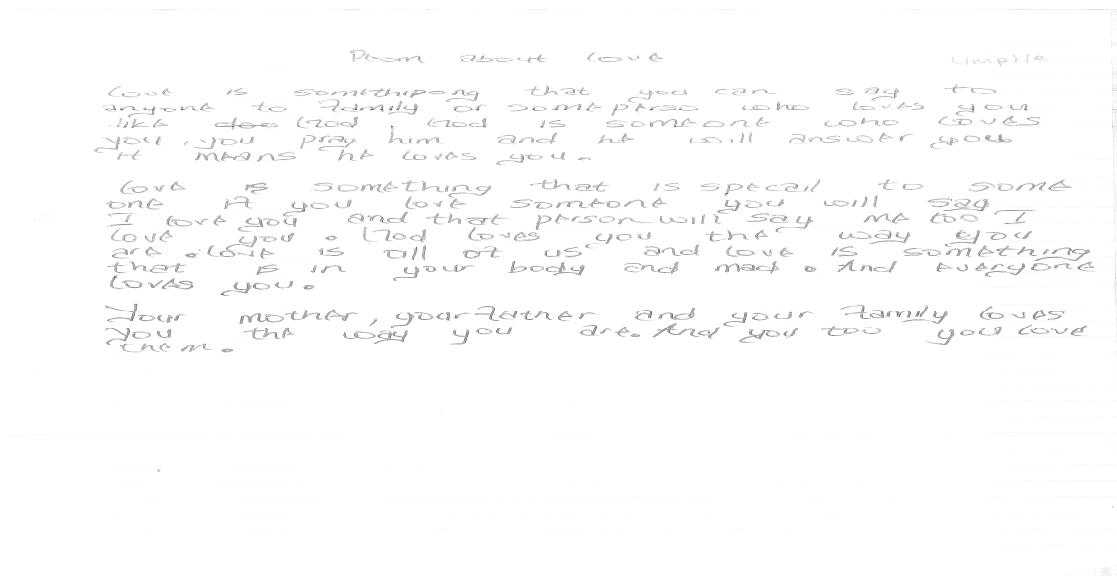 Poem about love
Limpile
Love is somethipong that you can say to
anyone to family or some perso who loves you
like God, God is someone who loves
you, you pray him and he will answer you
it means he loves you.
Love is something that is specail to some
one if you love someone you will say
I love you and that person will say me too I
love you. God loves you the way you
are. love is all of us and love is something
that is in your body and mad. And everyone
loves you.
Your mother, your father and your family loves
you the way you are. And you too you love
them.